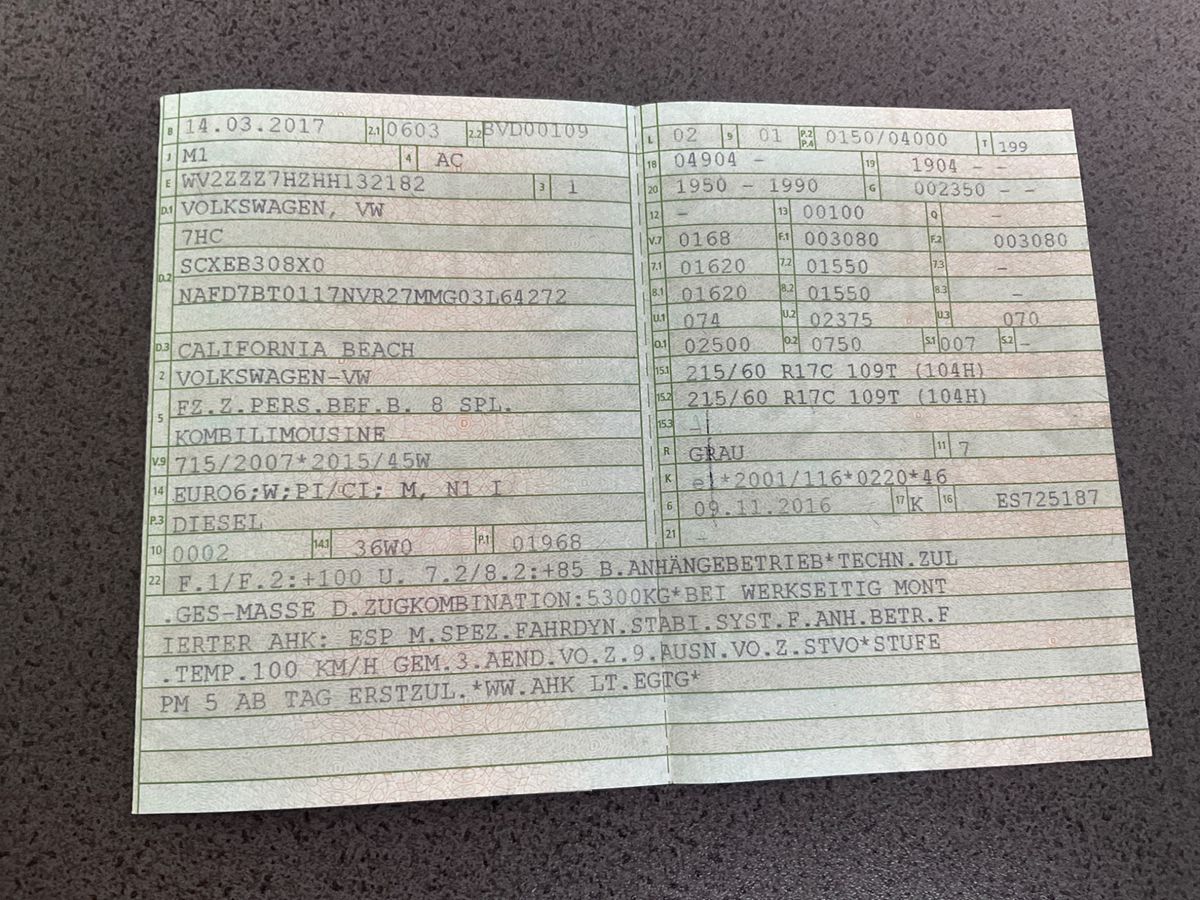 B 14.03.2017 2.1 0603 2.2 BVD00109
J M1 4 AC
E WV2ZZZ7HZHH132182 3 1
D.1 VOLKSWAGEN, VW
7HC
D.2 SCXEB308X0
NAFD7BT0117NVR27MMG03L64272
D.3 CALIFORNIA BEACH
2 VOLKSWAGEN-VW
5 FZ.Z.PERS.BEF.B. 8 SPL.
KOMBILIMOUSINE
V.9 715/2007*2015/45W
14 EURO6;W;PI/CI; M, N1 I
P.3 DIESEL
10 0002 14.1 36W0 P.1 01968
L 02 9 01 P.2 P.4 0150/04000 T 199
18 04904 - 19 1904 - -
20 1950 - 1990 G 002350 - -
12 - 13 00100 Q -
V.7 0168 F.1 003080 F.2 003080
7.1 01620 7.2 01550 7.3 -
8.1 01620 8.2 01550 8.3 -
U.1 074 U.2 02375 U.3 070
O.1 02500 O.2 0750 S.1 007 S.2 -
15.1 215/60 R17C 109T (104H)
15.2 215/60 R17C 109T (104H)
15.3 -
R GRAU 11 7
K e1*2001/116*0220*46
6 09.11.2016 17 K 16 ES725187
21 -
22 F.1/F.2:+100 U. 7.2/8.2:+85 B.ANHÄNGEBETRIEB*TECHN.ZUL
.GES-MASSE D.ZUGKOMBINATION:5300KG*BEI WERKSEITIG MONT
IERTER AHK: ESP M.SPEZ.FAHRDYN.STABI.SYST.F.ANH.BETR.F
.TEMP.100 KM/H GEM.3.AEND.VO.Z.9.AUSN.VO.Z.STVO*STUFE
PM 5 AB TAG ERSTZUL.*WW.AHK LT.EGTG*